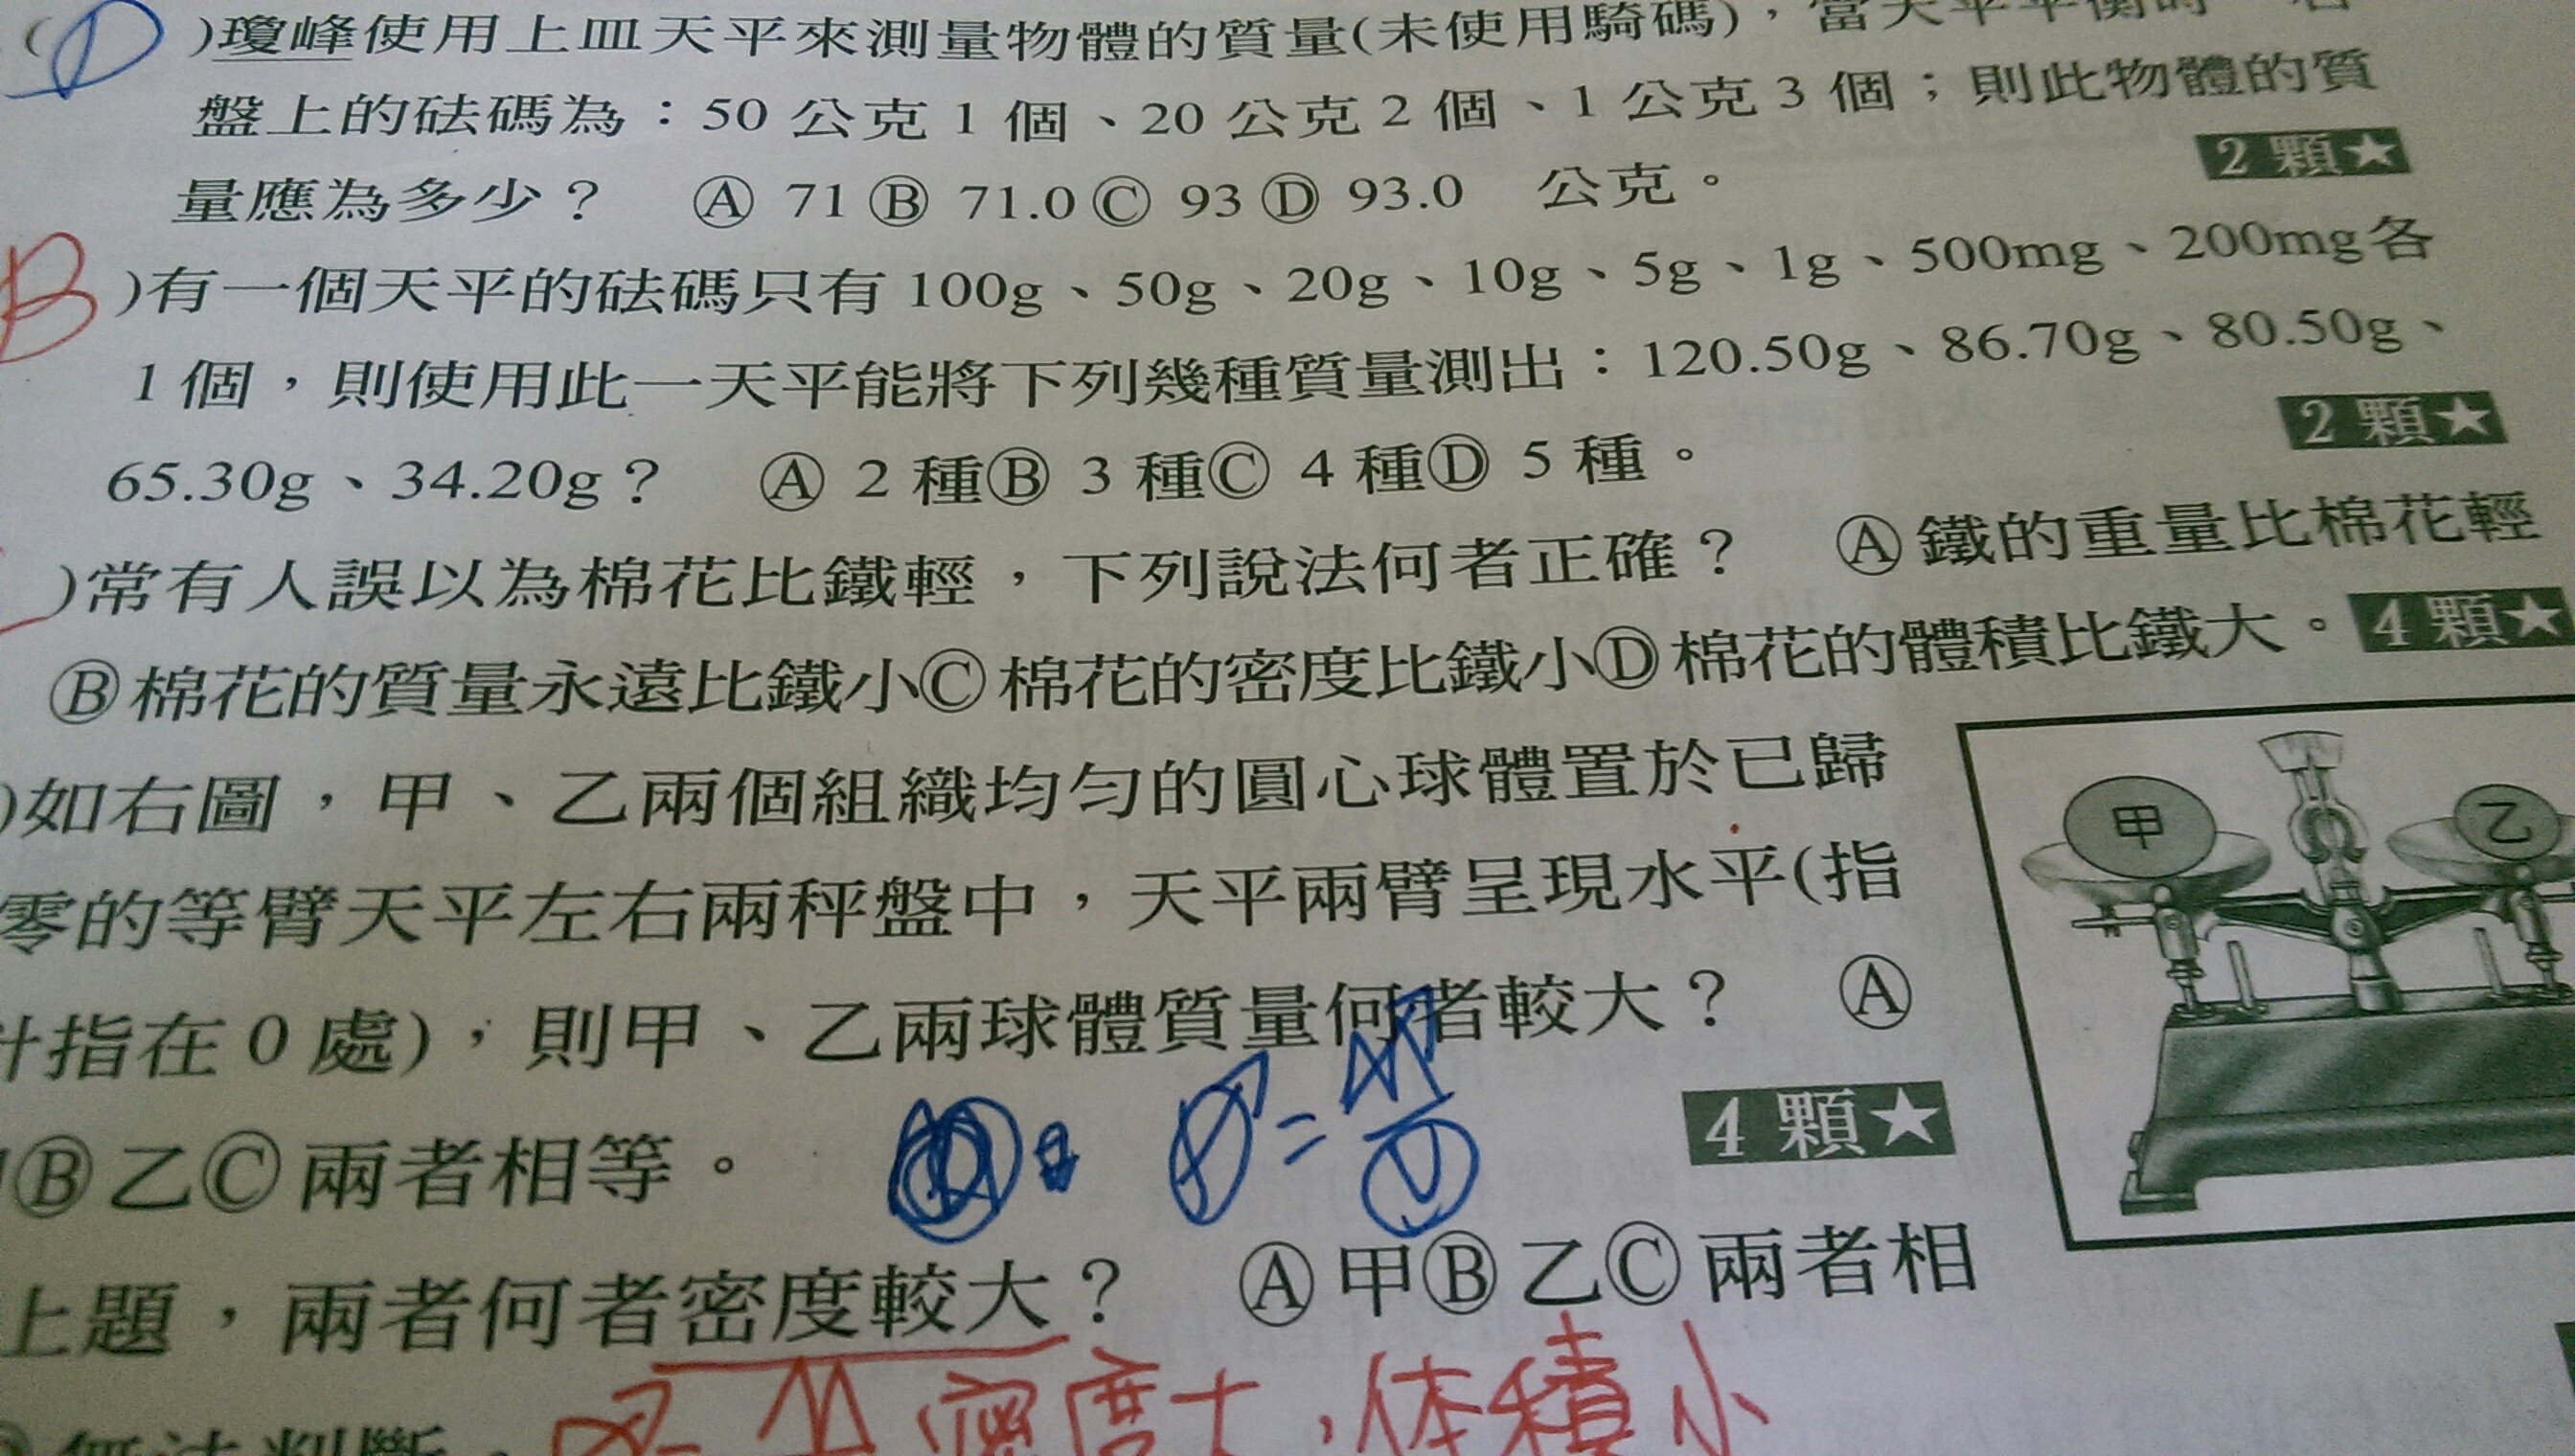 (D)瓊峰使用上皿天平來測量物體的質量(未使用騎碼),當天平平衡時
盤上的砝碼為:50 公克 1 個、20 公克 2 個、1 公克 3 個;則此物體的質
量應為多少? Ⓐ 71 Ⓑ 71.0 Ⓒ 93 Ⓓ 93.0 公克。 2 顆★
B )有一個天平的砝碼只有 100g、50g、20g、10g、5g、1g、500mg、200mg各
1 個,則使用此一天平能將下列幾種質量測出:120.50g、86.70g、80.50g、
65.30g、34.20g? Ⓐ 2 種Ⓑ 3 種Ⓒ 4 種Ⓓ 5 種。 2 顆★
)常有人誤以為棉花比鐵輕,下列說法何者正確? Ⓐ鐵的重量比棉花輕
Ⓑ棉花的質量永遠比鐵小Ⓒ棉花的密度比鐵小Ⓓ棉花的體積比鐵大。 4 顆★
)如右圖,甲、乙兩個組織均勻的圓心球體置於已歸
零的等臂天平左右兩秤盤中,天平兩臂呈現水平(指
針指在 0 處),則甲、乙兩球體質量何者較大? Ⓐ
Ⓑ乙Ⓒ兩者相等。 4 顆★
甲
乙
上題,兩者何者密度較大? Ⓐ甲Ⓑ乙Ⓒ兩者相
無法判斷
密度大,体積小